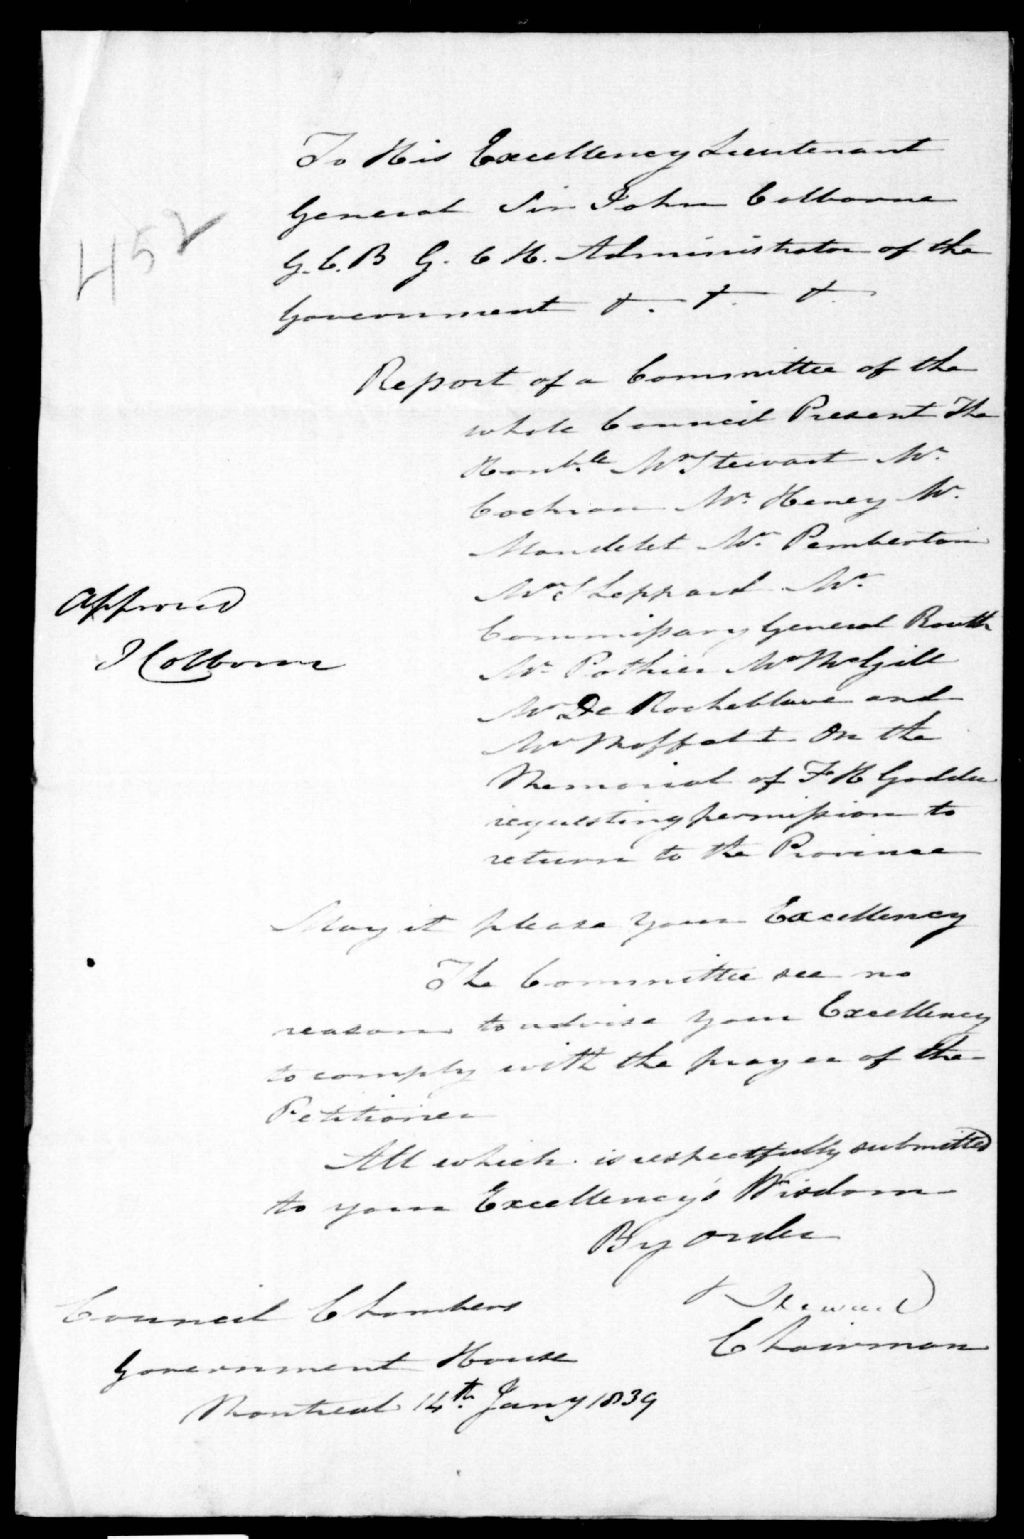 452
To His Excellency Lieutenant
General Sir John Colborne
G. C. B G. C H. Administrator of the
Government &. &. &.
Report of a Committee of the
whole Council Present The
Honble Mr Stewart Mr
Cochran Mr Heney Mr
Mondelet Mr Pemberton
Mr Sheppard Mr
Commissary General Routh
Mr Pothier Mr McGill
Mr De Rocheblave and
Mr Moffatt On the
Memorial of F H Goddu
requesting permission to
return to the Province
Approved
J Colborne
May it please Your Excellency
The Committee see no
reason to advise your Excellency
to comply with the prayer of the
Petitioner
All which is respectfully submitted
to your Excellency's Wisdom
By order
Stewart
Chairman
Council Chambers
Government House
Montreal 14th Jany 1839